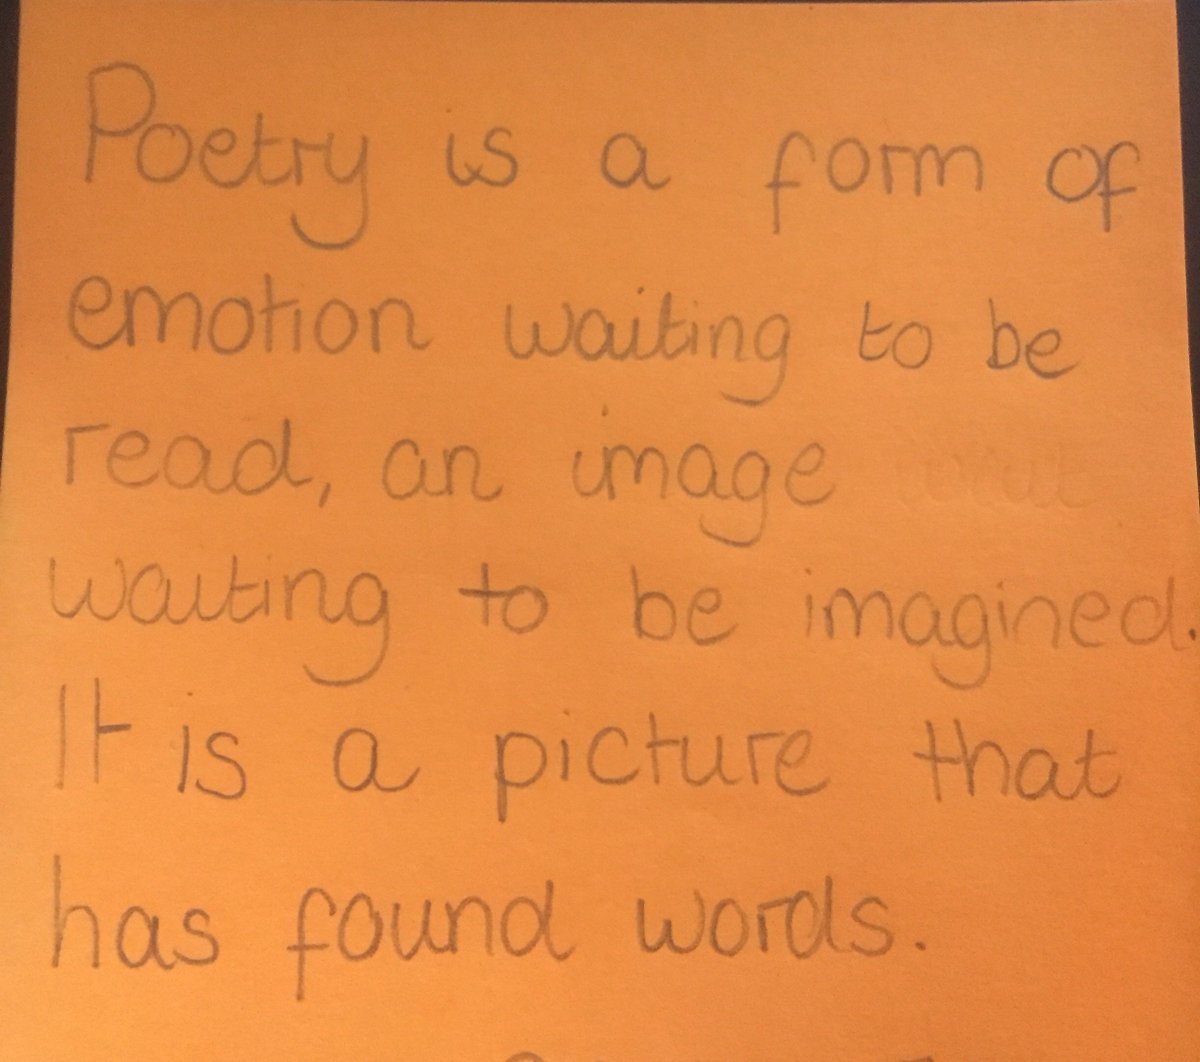 Poetry is a form of
emotion waiting to be
read, an image
waiting to be imagined.
It is a picture that
has found words.